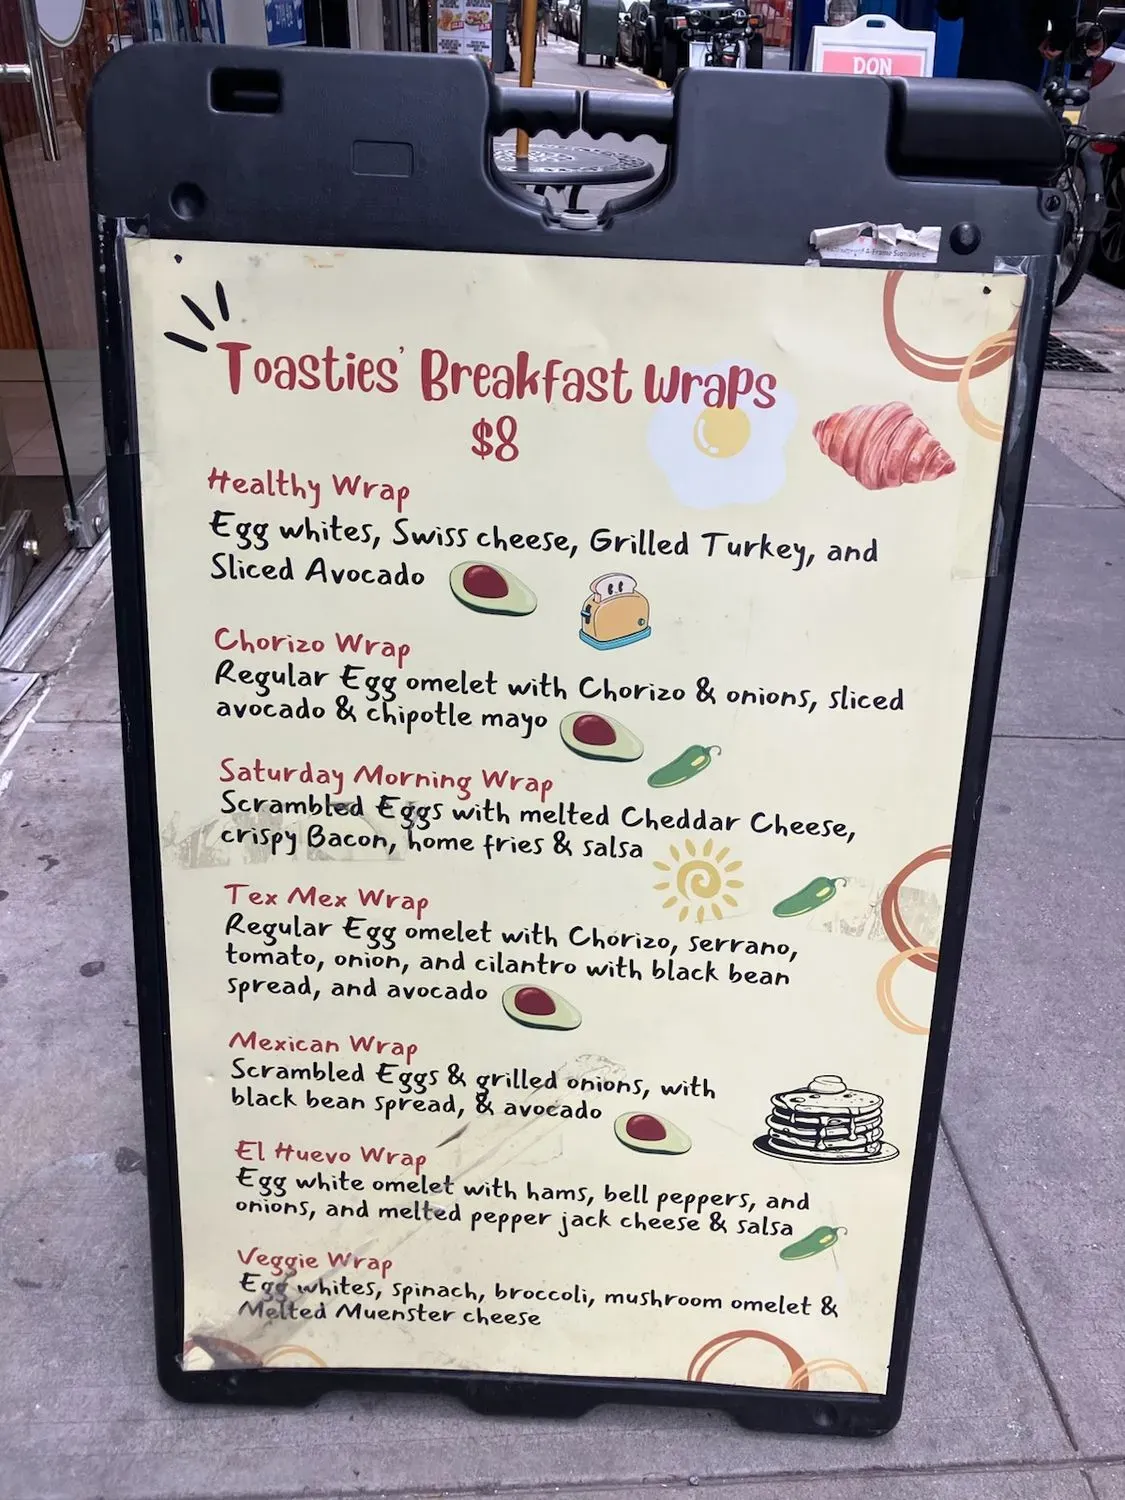 DON
Toasties' Breakfast Wraps
$8
Healthy Wrap
Egg whites, Swiss cheese, Grilled Turkey, and
Sliced Avocado
Chorizo Wrap
Regular Egg omelet with Chorizo & onions, sliced
avocado & chipotle mayo
Saturday Morning Wrap
Scrambled Eggs with melted Cheddar Cheese,
crispy Bacon, home fries & salsa
Tex Mex Wrap
Regular Egg omelet with Chorizo, serrano,
tomato, onion, and cilantro with black bean
spread, and avocado
Mexican Wrap
Scrambled Eggs & grilled onions, with
black bean spread, & avocado
El Huevo Wrap
Egg white omelet with hams, bell peppers, and
onions, and melted pepper jack cheese & salsa
Veggie Wrap
Egg whites, spinach, broccoli, mushroom omelet &
Melted Muenster cheese